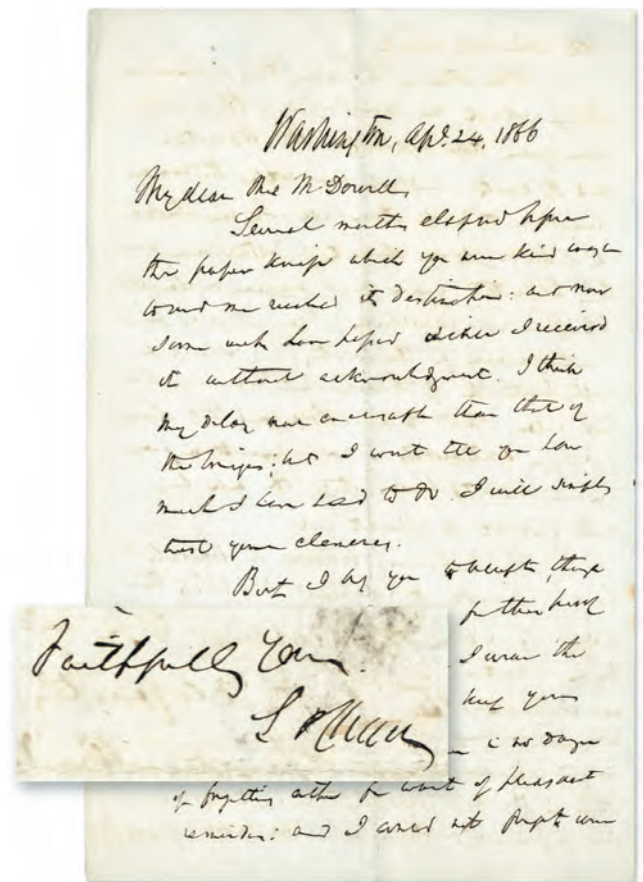 Washington, Apl. 24, 1866
My dear Mrs McDowell,
Several months elapsed before
the paper knife which you were kind enough
to send me reached its destination: and now
some weeks have lapsed since I received
it without acknowledgment. I think
my delay more excusable than that of
the knife; but I wont tell you how
much I have had to do. I will simply
trust your clemency.
But I beg you to accept, though
for the
I the
keep yours
is no danger
of forgetting either for want of pleasant
reminders: and I could not forget
Faithfully Yours
S P Chase